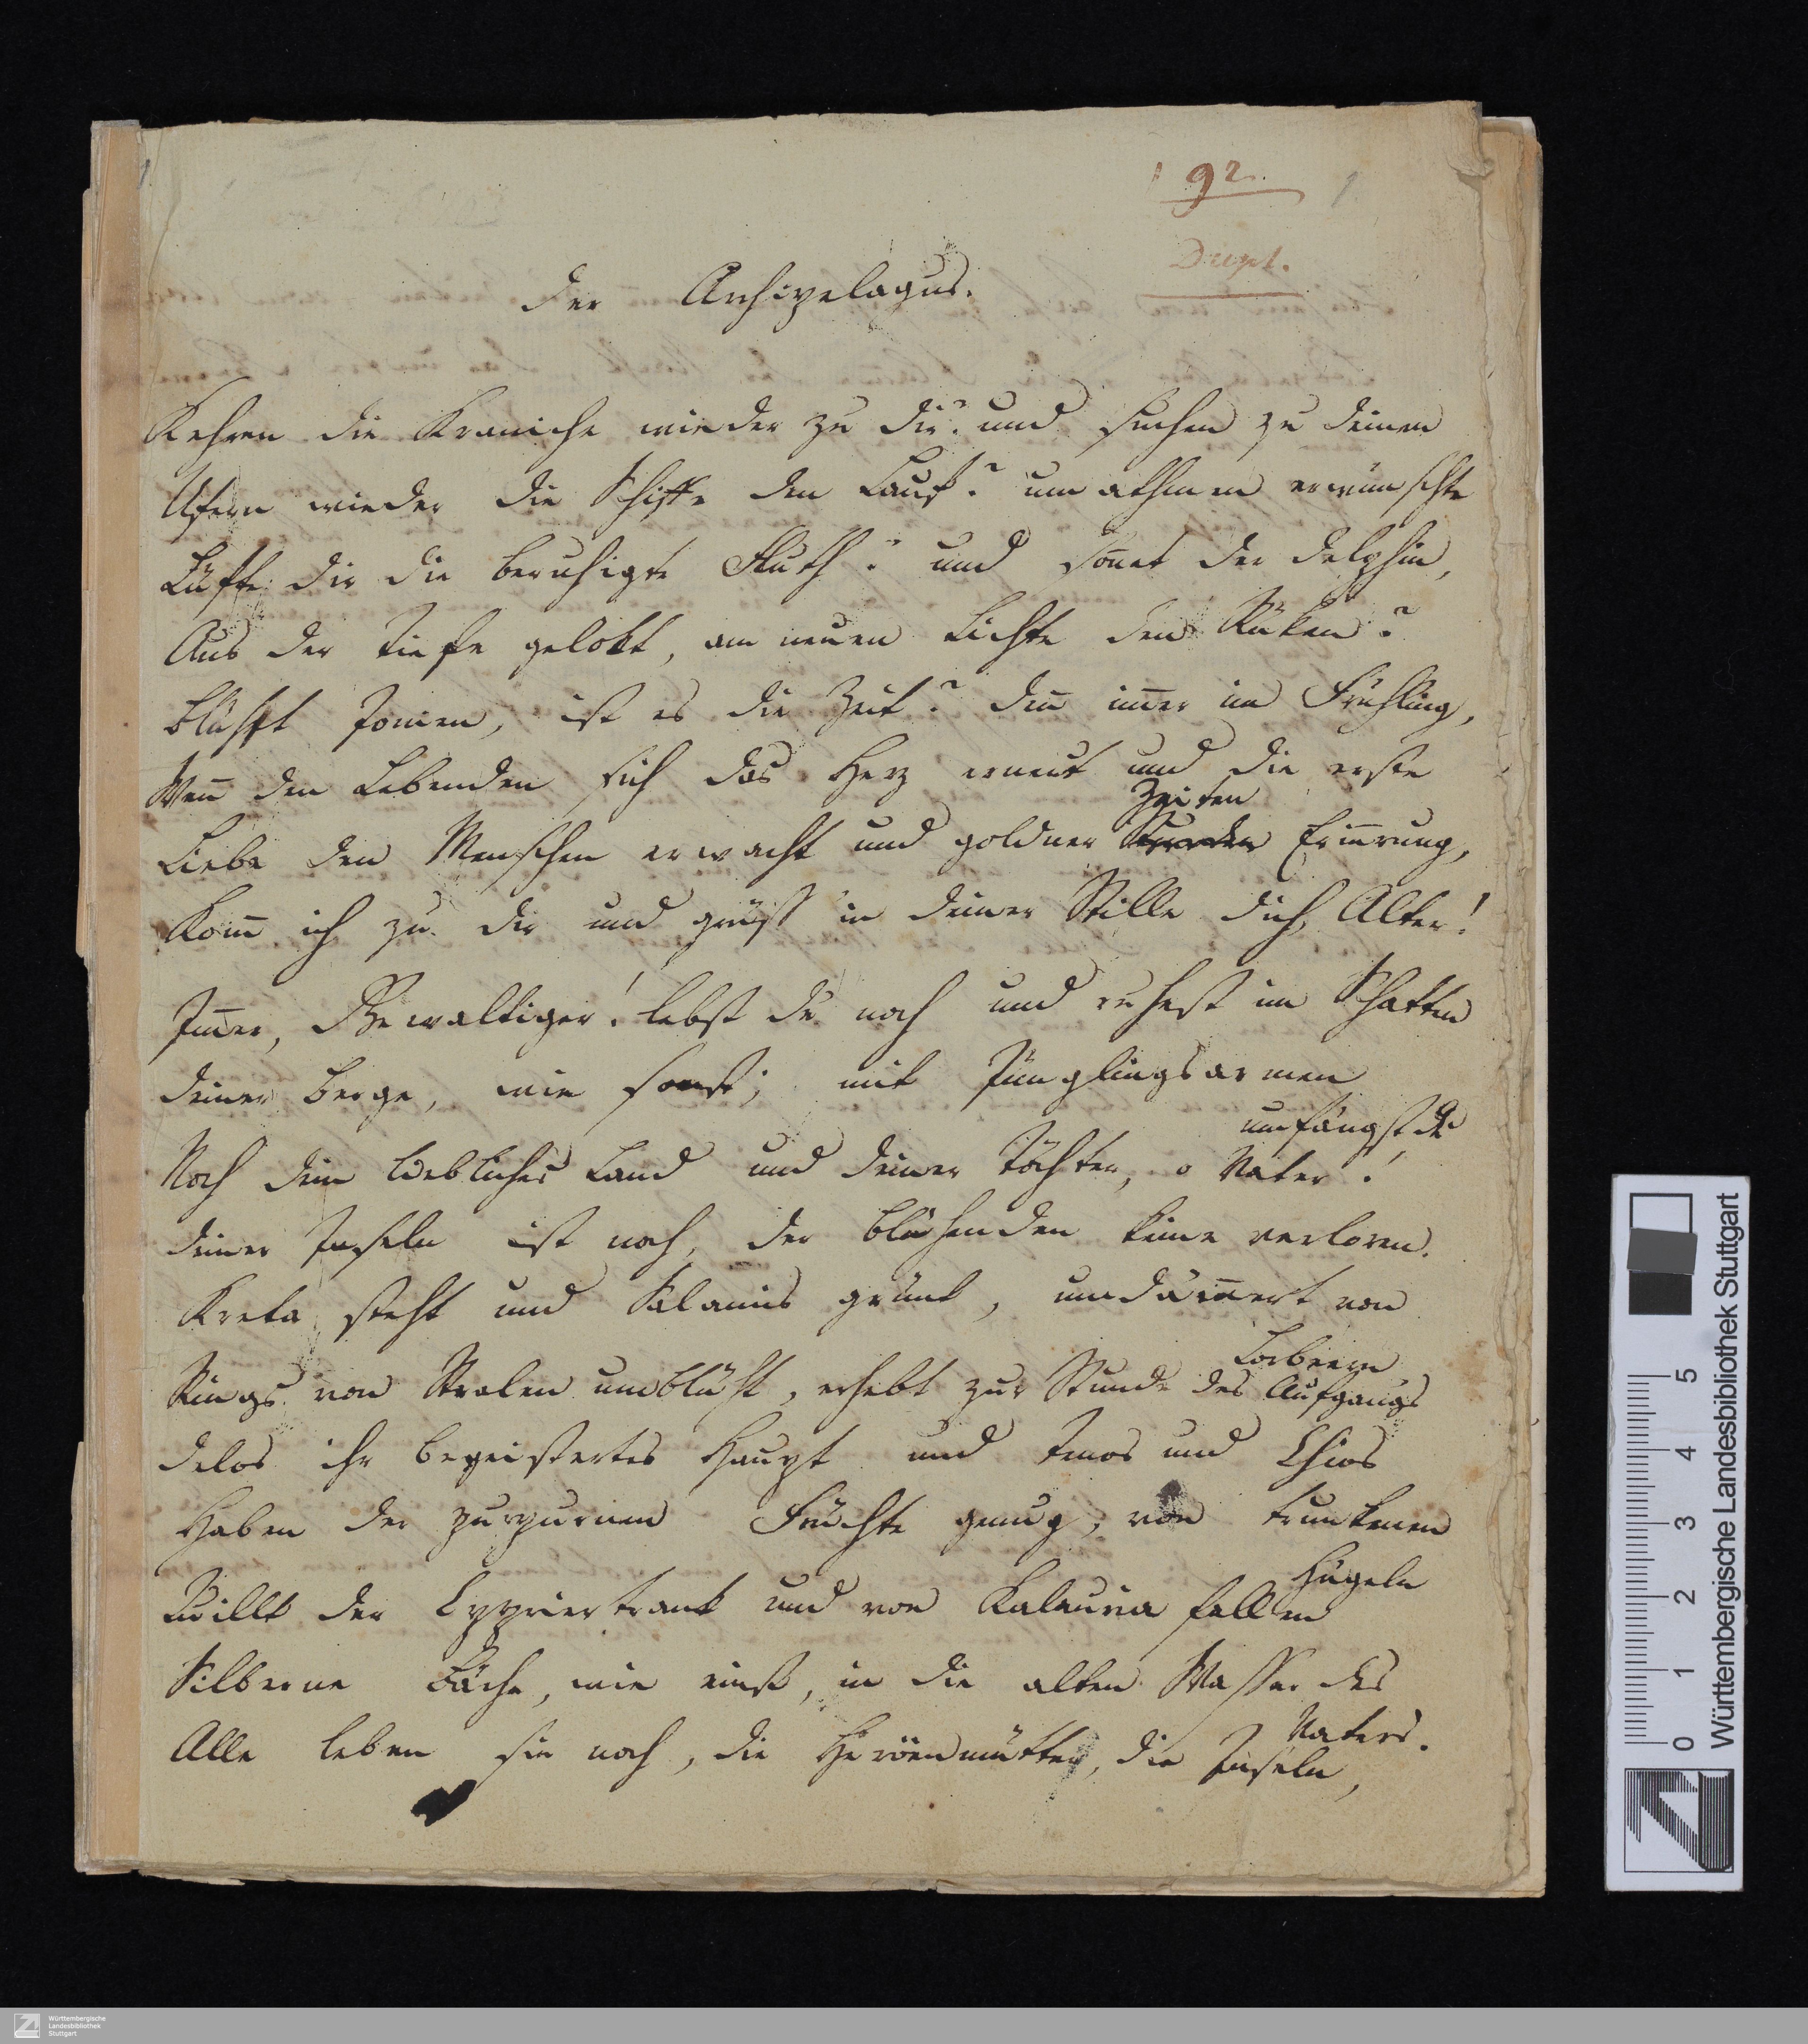 192.
1
Dupl.
Der Archipelagus.
Kehren die Kraniche wieder zu dir? und suchen zu deinen
Ufern wieder die Schiffe den Lauf? umathmen erwünschte
Lüfte dir die beruhigte Fluth? und soñet der Delphin,
Aus der Tiefe gelokt, am neuen Lichte den Rüken?
Blüht Jonien, ist es die Zeit? deñ im̃er im Frühling,
Weñ den Lebenden sich das Herz erneut und die erste
Zeiten
Liebe den Menschen erwacht und goldner Erin̄erung,
Kom̃ ich zu dir und grüß in deiner Stille dich, Alter!
Im̃er, Gewaltiger! lebst du noch und ruhest im Schatten
Deiner Berge, wie sonst; mit Jünglingsarmen
umfängst du
Noch dein liebliches Land und deiner Töchter, o Vater!
Deiner Inseln ist noch, der blühenden keine verloren.
Kreta steht und Salamis grünt, umdäm̃ert von
Lorbeern
Rings von Stralen umblüht, erhebt zur Stunde des Aufgangs
Delos ihr begeistertes Haupt und Tenos und Chios
Haben der purpurnen Früchte genug, von trunkenen
Hügeln
Quillt der Cypriertrank und von Kalauria fallen
Silberne Bäche, wie einst, in die alten Wasser des
Vaters.
Alle leben sie noch, die Heroënmütter, die Inseln,
0 1 2 3 4 5
Württembergische Landesbibliothek Stuttgart
Württembergische
Landesbibliothek
Stuttgart